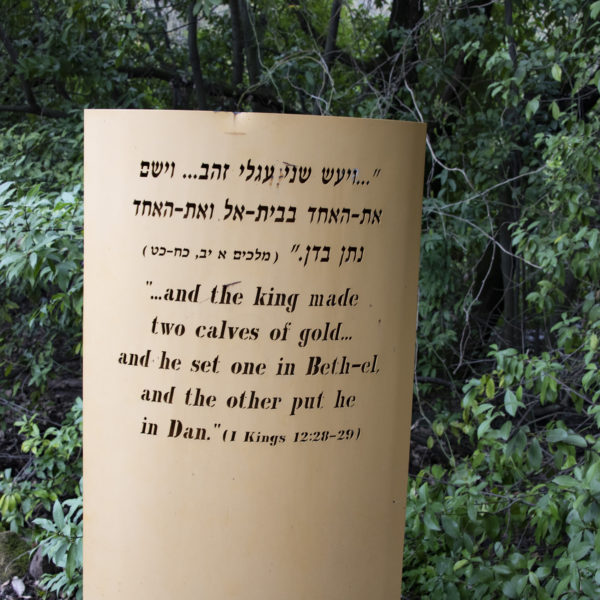 "...ויעש שני עגלי זהב... וישם
את-האחד בבית-אל ואת-האחד
נתן בדן." (מלכים א יב, כח-כט)
"...and the king made
two calves of gold...
and he set one in Beth-el,
and the other put he
in Dan." (I Kings 12:28-29)